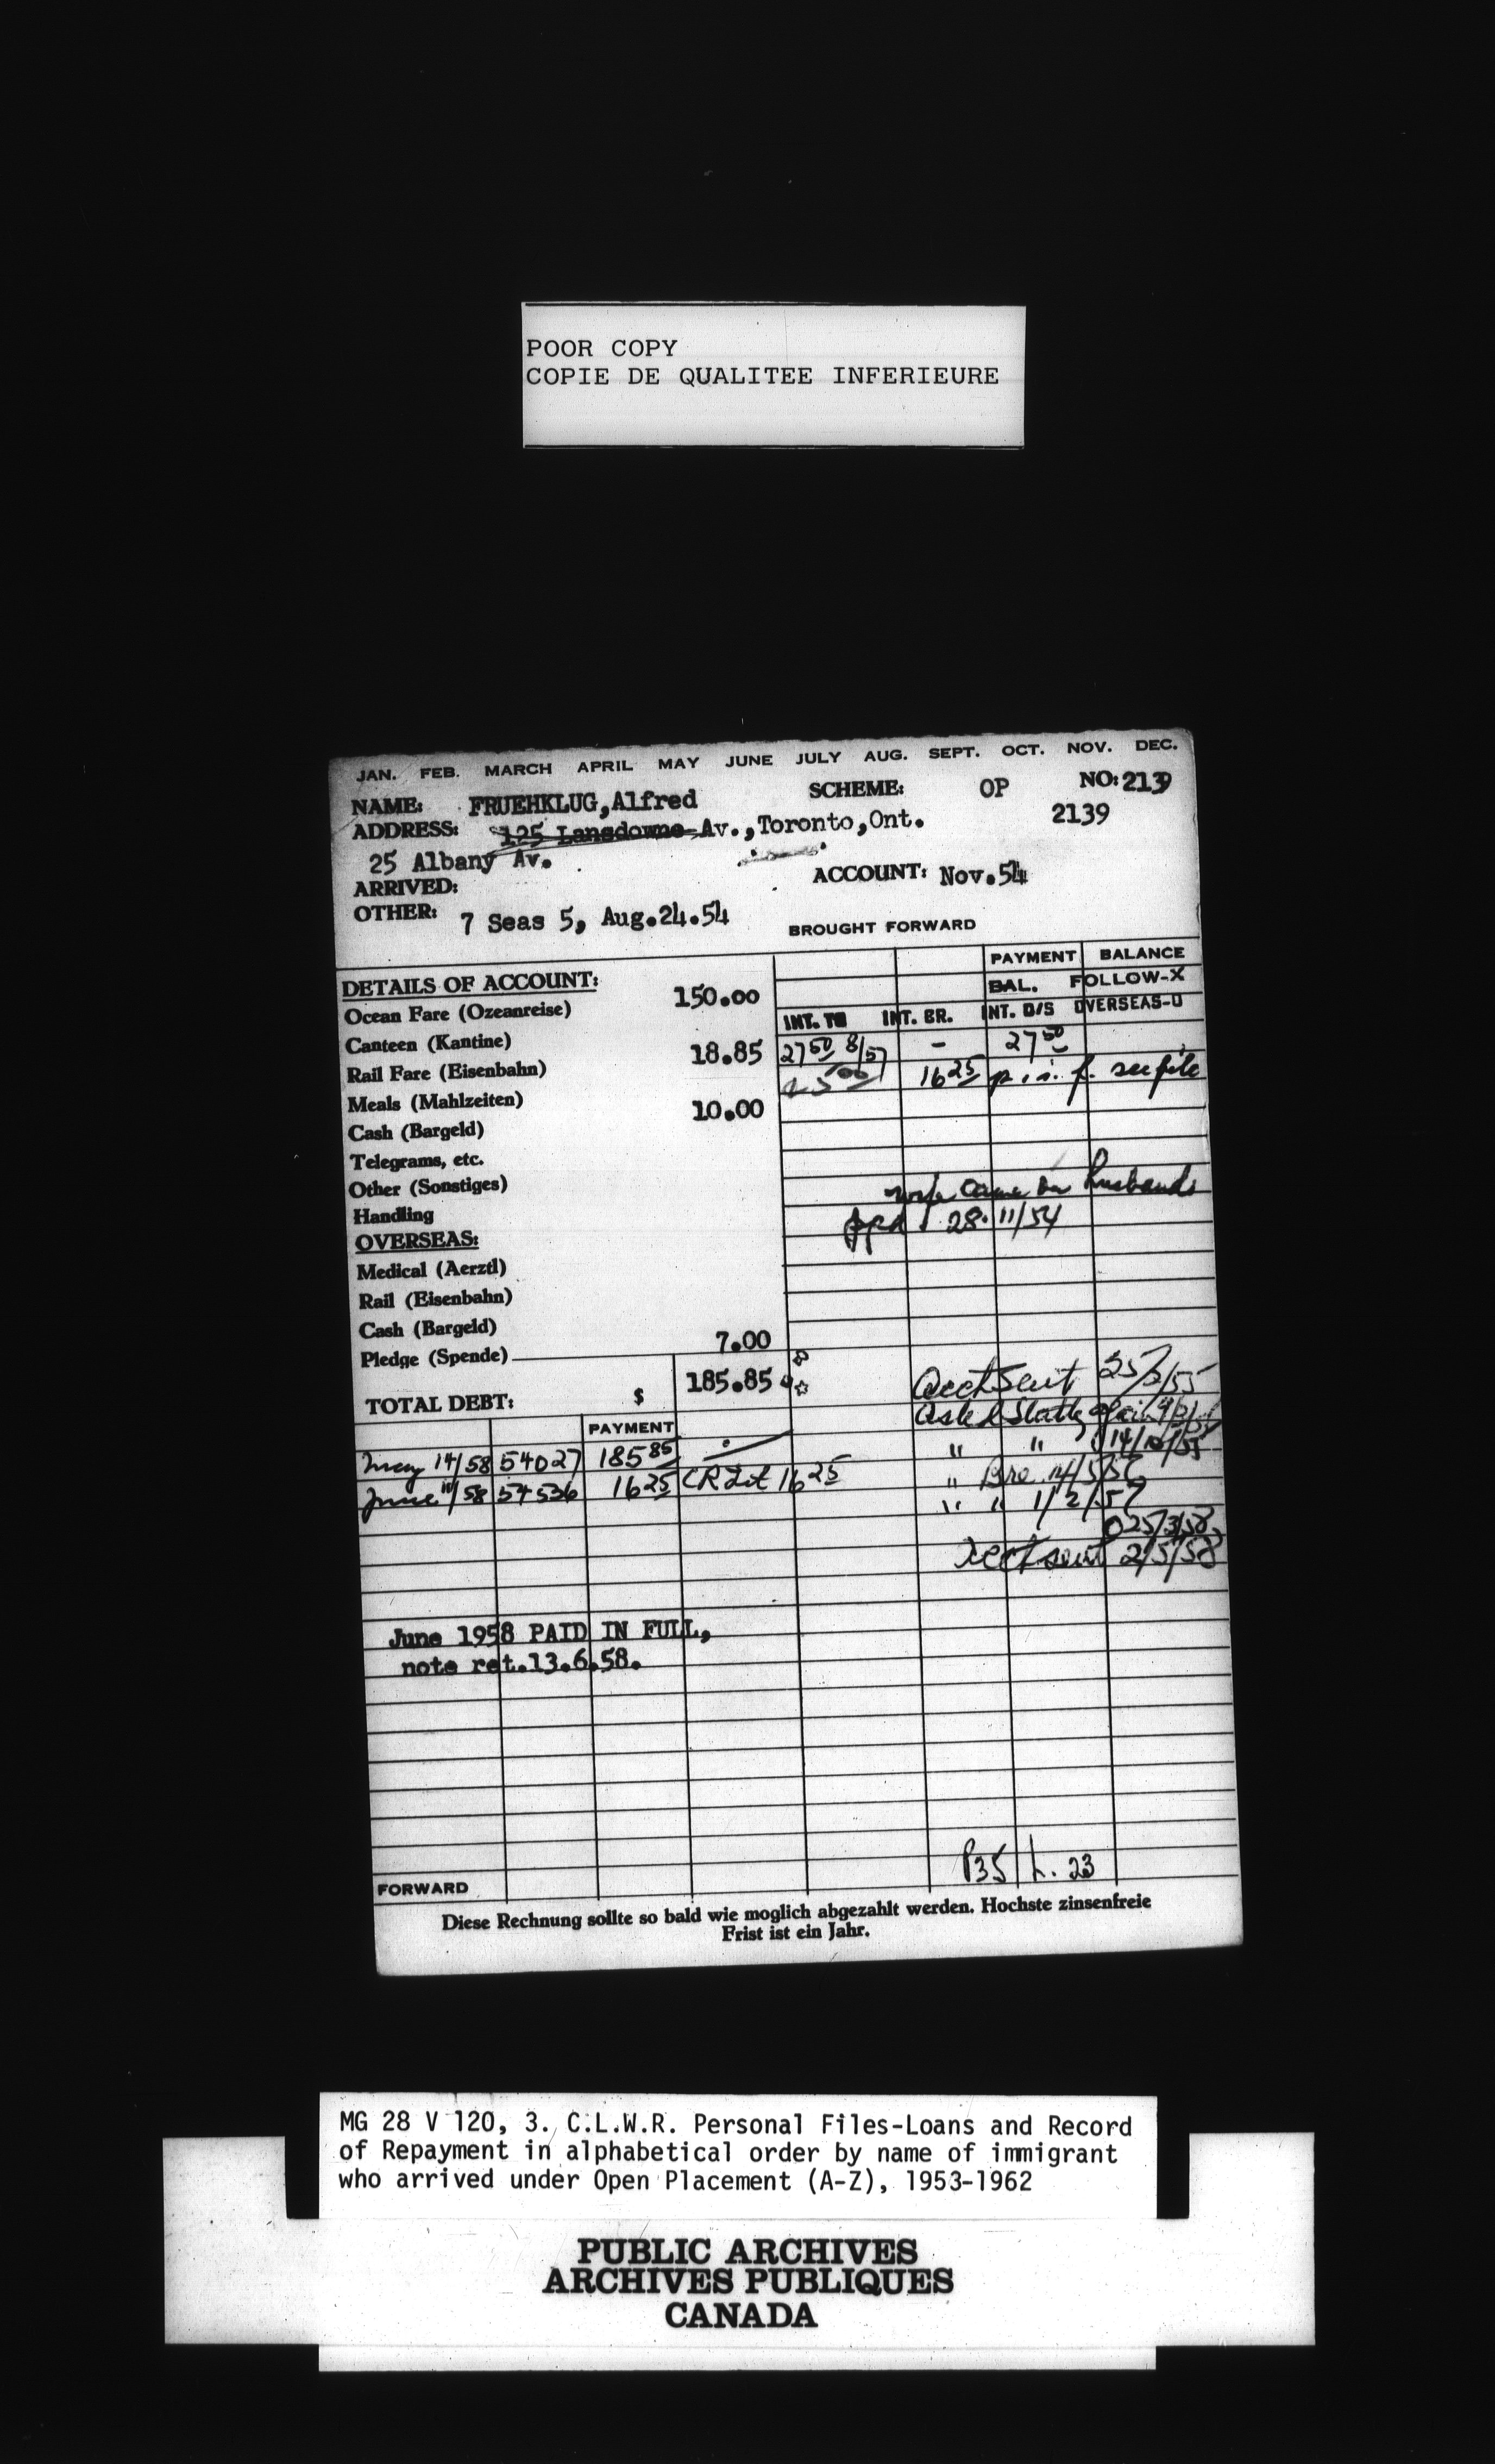 POOR COPY
COPIE DE QUALITEE INFERIEURE
JAN. FEB. MARCH APRIL MAY JUNE JULY AUG. SEPT. OCT. NOV. DEC.
NAME: FRUEHKLUG, Alfred SCHEME: OP NO: 2139
ADDRESS: 125 Lansdowne Av., Toronto, Ont. 2139
25 Albany Av.
ARRIVED: ACCOUNT: Nov.54
OTHER: 7 Seas 5, Aug.24.54
BROUGHT FORWARD
PAYMENT BALANCE
DETAILS OF ACCOUNT: BAL. FOLLOW-X
Ocean Fare (Ozeanreise) 150.00 INT. TO INT. BR. INT. O/S OVERSEAS-U
Canteen (Kantine) 27 50 8/57 - 27 50
Rail Fare (Eisenbahn) 18.85 16 25 p. i. f. see file
Meals (Mahlzeiten)
Cash (Bargeld) 10.00
Telegrams, etc.
Other (Sonstiges) came on husbands
Handling 28.11/54
OVERSEAS:
Medical (Aerztl)
Rail (Eisenbahn)
Cash (Bargeld)
Pledge (Spende) 7.00
TOTAL DEBT: $ 185.85
Acct Sent 25/3/55
PAYMENT
May 14/58 54027 185 85
" " 14/10/55
June 11/58 54536 16 25 CR Int 16 25
" 14/5/56
" " 1/2/57
25/3/58
Acct sent 2/5/58
June 1958 PAID IN FULL,
note ret.13.6.58.
P35 L. 23
FORWARD
Diese Rechnung sollte so bald wie moglich abgezahlt werden. Hochste zinsenfreie
Frist ist ein Jahr.
MG 28 V 120, 3. C.L.W.R. Personal Files-Loans and Record
of Repayment in alphabetical order by name of immigrant
who arrived under Open Placement (A-Z), 1953-1962
PUBLIC ARCHIVES
ARCHIVES PUBLIQUES
CANADA